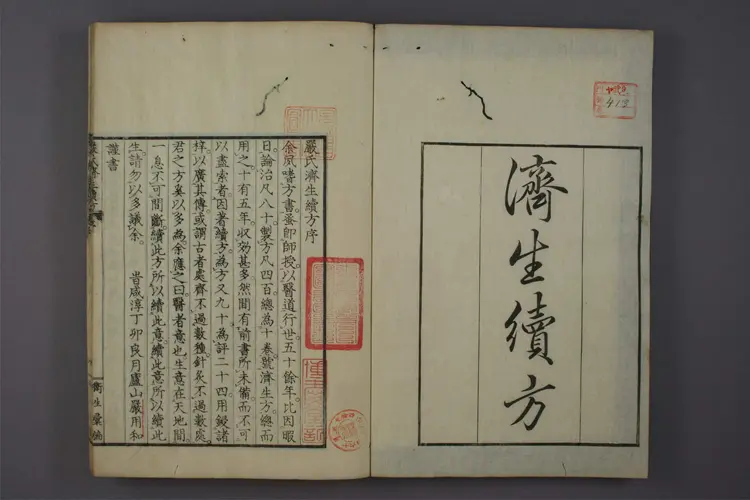 濟生續方
413
嚴氏濟生續方序
余夙嗜方書。蚤即師授。以醫道行世五十餘年。比因暇
日。論治凡八十。製方凡四百。總為十卷。號濟生方。總而
用之。十有五年。收効甚多。然間有前書所未備。而不可
以盡索者。因著續方。為方又九十。為評二十四。用鋟諸
梓。以廣其傳。或謂古者處齊不過數種。針灸不過數處。
君之方奚以多為。余應之曰。醫者意也。生意在天地間。
一息不可間斷。續此方所以續此意。續此意所以續此
生。請勿以多議余。 旹咸淳丁卯良月廬山嚴用和
謹書
衛生彙編